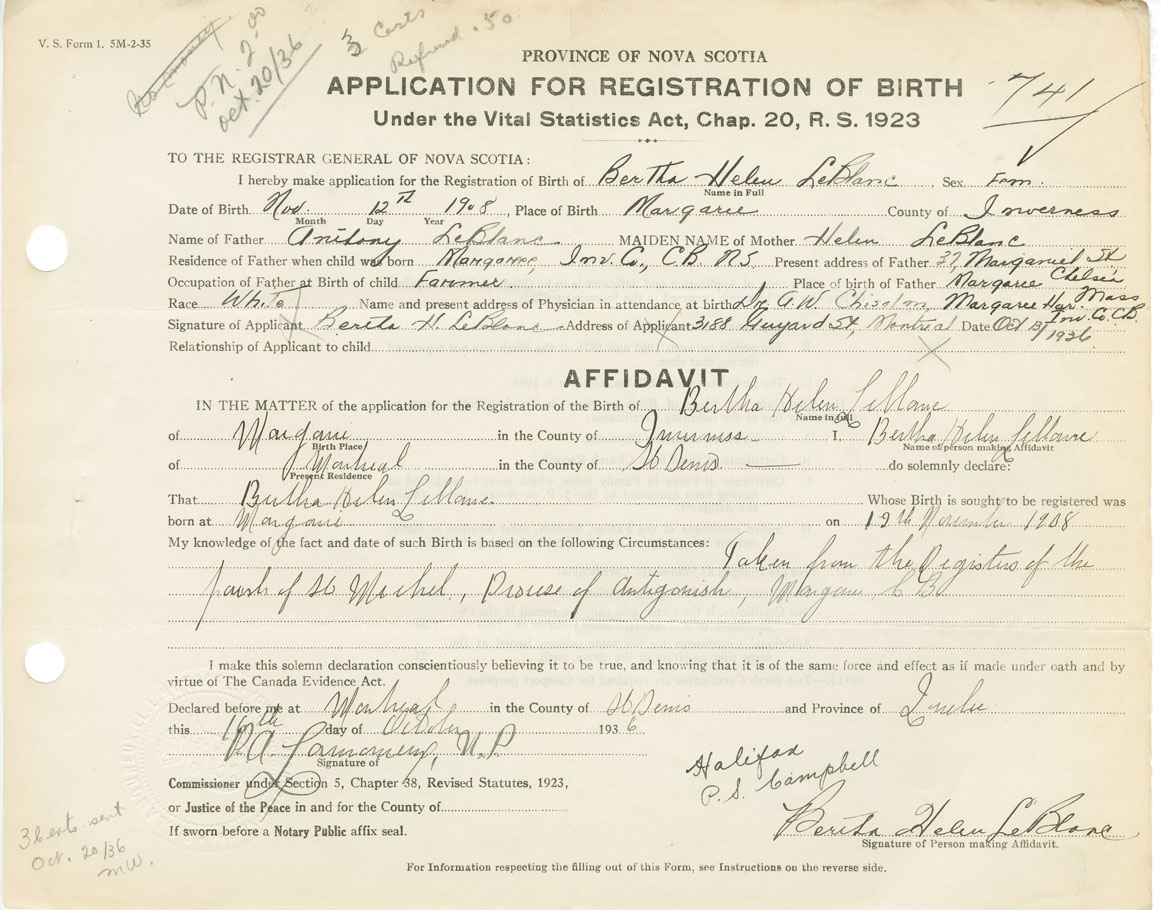 V. S. Form 1. 5M-2-35
No money
P. N. 2.00
Oct. 20/36
3 Certs
Refund .50
PROVINCE OF NOVA SCOTIA
APPLICATION FOR REGISTRATION OF BIRTH
741
Under the Vital Statistics Act, Chap. 20, R. S. 1923
TO THE REGISTRAR GENERAL OF NOVA SCOTIA:
I hereby make application for the Registration of Birth of Bertha Helen LeBlanc, Sex Fem.
Name in Full
Date of Birth Nov. 12th 1908, Place of Birth Margaree County of Inverness
Month Day Year
Name of Father Anthony LeBlanc MAIDEN NAME of Mother Helen LeBlanc
Residence of Father when child was born Margaree, Inv. Co., C.B. N.S. Present address of Father 37, St
Occupation of Father at Birth of child Farmer. Place of birth of Father Margaree Chelsea
Mass
Race White Name and present address of Physician in attendance at birth Dr. A.W. Chisolm Margaree Har. Inv. Co. C.B.
Signature of Applicant Bertha H. LeBlanc Address of Applicant 3188 Guyard St, Montreal Date Oct 1936
Relationship of Applicant to child
AFFIDAVIT
IN THE MATTER of the application for the Registration of the Birth of Bertha Helen Leblanc
Name in full
of Margarie in the County of Inverness I, Bertha Helen Leblanc
Birth Place Name of person making Affidavit
of Montreal in the County of St Denis do solemnly declare:
Present Residence
That Bertha Helen Leblanc Whose Birth is sought to be registered was
born at Margarie on 12th November 1908
My knowledge of the fact and date of such Birth is based on the following Circumstances: Taken from the Registers of the
parish of St Michel, Diocese of Antigonish, Margarie, C B
I make this solemn declaration conscientiously believing it to be true, and knowing that it is of the same force and effect as if made under oath and by
virtue of The Canada Evidence Act.
Declared before me at Montreal in the County of St Denis and Province of Quebec
this 16th day of October 1936
N.P.
Signature of
Commissioner under Section 5, Chapter 38, Revised Statutes, 1923,
or Justice of the Peace in and for the County of
If sworn before a Notary Public affix seal.
Halifax
P. S. Campbell
Bertha Helen LeBlanc
Signature of Person making Affidavit.
3 Certs. sent
Oct. 20/36
MW.
For Information respecting the filling out of this Form, see Instructions on the reverse side.